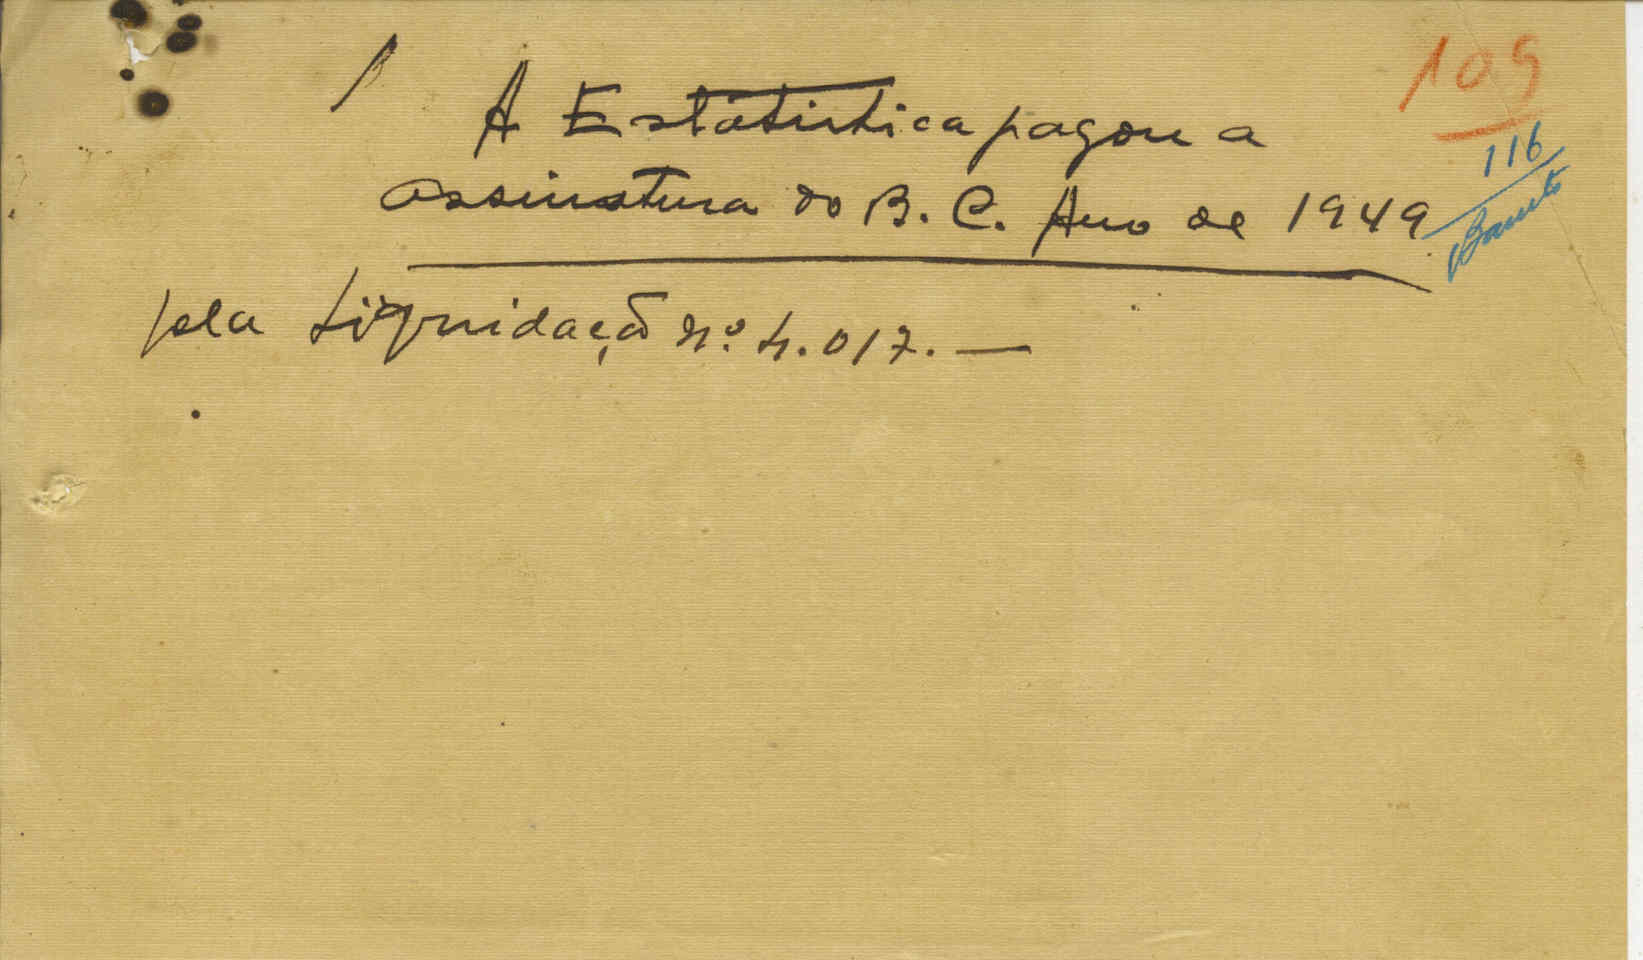 A Estatistica pagou a
assinatura do B. C. Ano de 1949
pela Liquidação nº 4.017. —
109
116